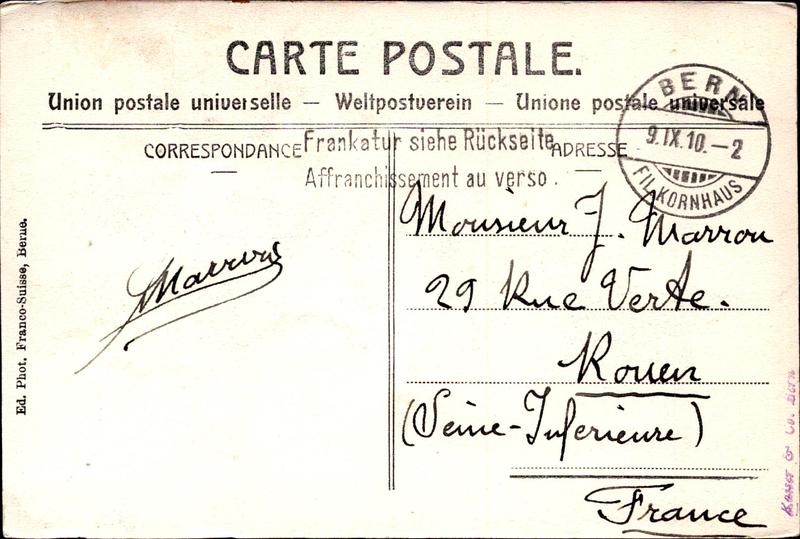 CARTE POSTALE.
Union postale universelle — Weltpostverein — Unione postale universale
CORRESPONDANCE
Frankatur siehe Rückseite
Affranchissement au verso.
ADRESSE
BERN
9.IX.10.–2
FIL. KORNHAUS
Monsieur J. Marrou
29 Rue Verte.
Rouen
(Seine-Inferieure)
France
Ed. Phot. Franco-Suisse, Berne.